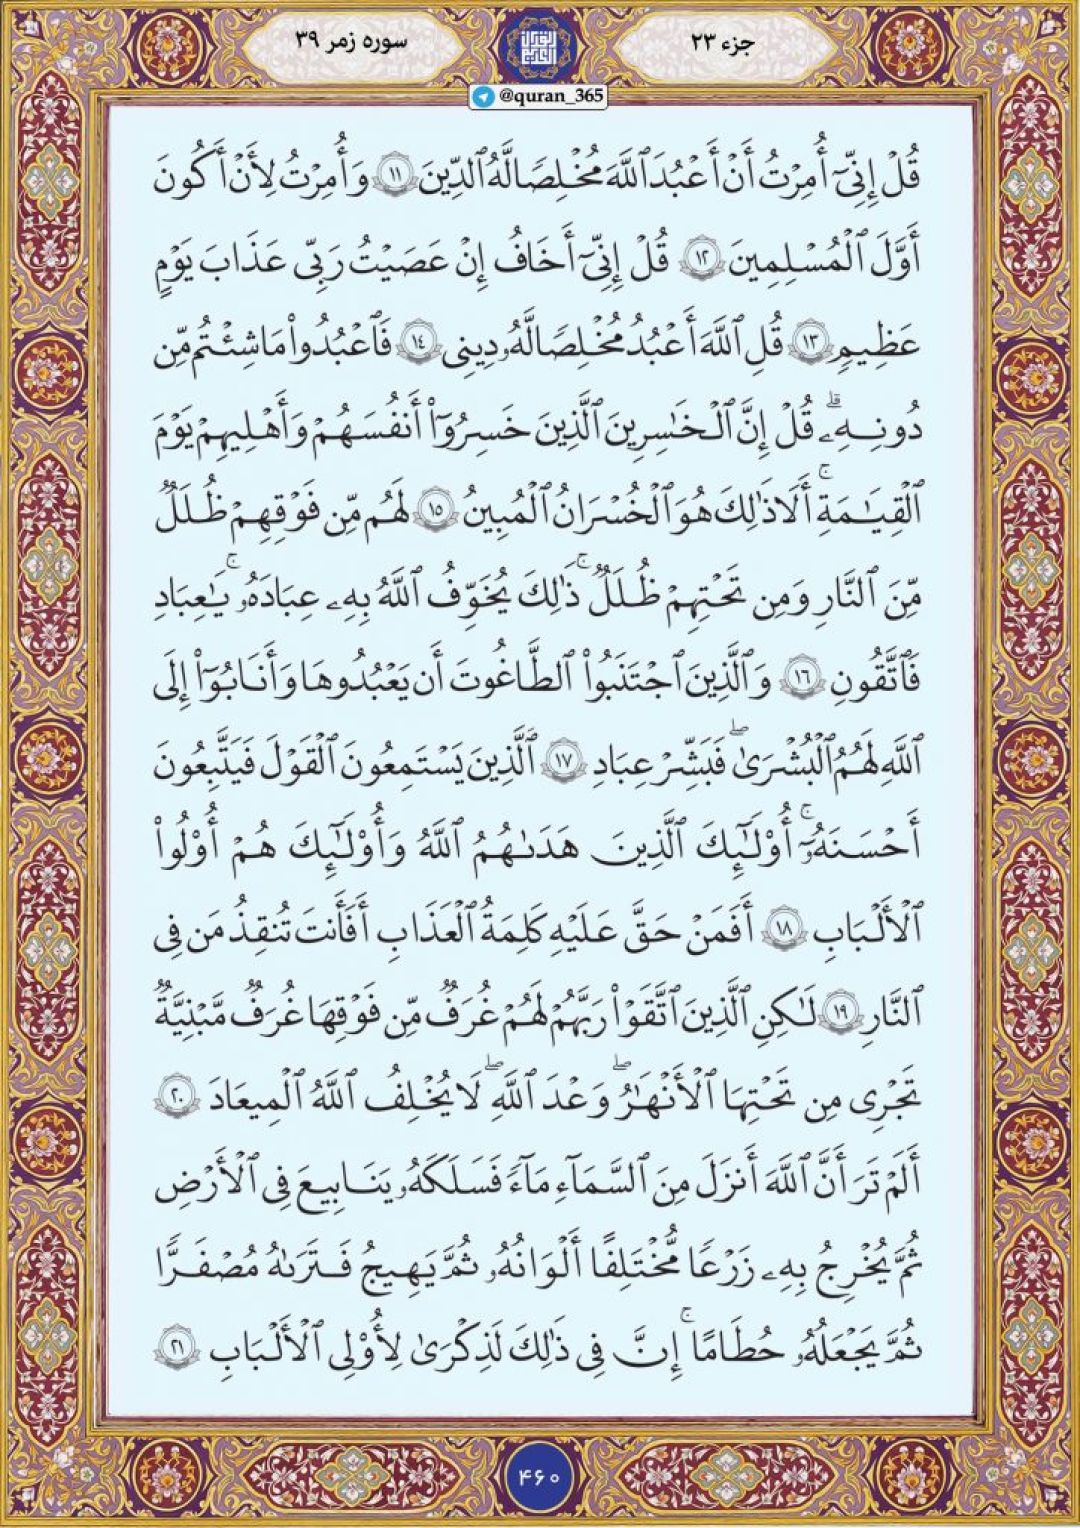 جزء ۲۳
سوره زمر ۳۹
@quran_365
قُلْ إِنِّىٓ أُمِرْتُ أَنْ أَعْبُدَ ٱللَّهَ مُخْلِصًا لَّهُ ٱلدِّينَ ١١ وَأُمِرْتُ لِأَنْ أَكُونَ
أَوَّلَ ٱلْمُسْلِمِينَ ١٢ قُلْ إِنِّىٓ أَخَافُ إِنْ عَصَيْتُ رَبِّى عَذَابَ يَوْمٍ
عَظِيمٍ ١٣ قُلِ ٱللَّهَ أَعْبُدُ مُخْلِصًا لَّهُۥ دِينِى ١٤ فَٱعْبُدُوا۟ مَا شِئْتُم مِّن
دُونِهِۦ ۗ قُلْ إِنَّ ٱلْخَٰسِرِينَ ٱلَّذِينَ خَسِرُوٓا۟ أَنفُسَهُمْ وَأَهْلِيهِمْ يَوْمَ
ٱلْقِيَٰمَةِ ۚ أَلَا ذَٰلِكَ هُوَ ٱلْخُسْرَانُ ٱلْمُبِينُ ١٥ لَهُم مِّن فَوْقِهِمْ ظُلَلٌ
مِّنَ ٱلنَّارِ وَمِن تَحْتِهِمْ ظُلَلٌ ۚ ذَٰلِكَ يُخَوِّفُ ٱللَّهُ بِهِۦ عِبَادَهُۥ ۚ يَٰعِبَادِ
فَٱتَّقُونِ ١٦ وَٱلَّذِينَ ٱجْتَنَبُوا۟ ٱلطَّٰغُوتَ أَن يَعْبُدُوهَا وَأَنَابُوٓا۟ إِلَى
ٱللَّهِ لَهُمُ ٱلْبُشْرَىٰ ۖ فَبَشِّرْ عِبَادِ ١٧ ٱلَّذِينَ يَسْتَمِعُونَ ٱلْقَوْلَ فَيَتَّبِعُونَ
أَحْسَنَهُۥٓ ۚ أُو۟لَٰٓئِكَ ٱلَّذِينَ هَدَىٰهُمُ ٱللَّهُ وَأُو۟لَٰٓئِكَ هُمْ أُو۟لُوا۟
ٱلْأَلْبَٰبِ ١٨ أَفَمَنْ حَقَّ عَلَيْهِ كَلِمَةُ ٱلْعَذَابِ أَفَأَنتَ تُنقِذُ مَن فِى
ٱلنَّارِ ١٩ لَٰكِنِ ٱلَّذِينَ ٱتَّقَوْا۟ رَبَّهُمْ لَهُمْ غُرَفٌ مِّن فَوْقِهَا غُرَفٌ مَّبْنِيَّةٌ
تَجْرِى مِن تَحْتِهَا ٱلْأَنْهَٰرُ ۖ وَعْدَ ٱللَّهِ ۖ لَا يُخْلِفُ ٱللَّهُ ٱلْمِيعَادَ ٢٠
أَلَمْ تَرَ أَنَّ ٱللَّهَ أَنزَلَ مِنَ ٱلسَّمَآءِ مَآءً فَسَلَكَهُۥ يَنَٰبِيعَ فِى ٱلْأَرْضِ
ثُمَّ يُخْرِجُ بِهِۦ زَرْعًا مُّخْتَلِفًا أَلْوَٰنُهُۥ ثُمَّ يَهِيجُ فَتَرَىٰهُ مُصْفَرًّا
ثُمَّ يَجْعَلُهُۥ حُطَٰمًا ۚ إِنَّ فِى ذَٰلِكَ لَذِكْرَىٰ لِأُو۟لِى ٱلْأَلْبَٰبِ ٢١
۴۶۰